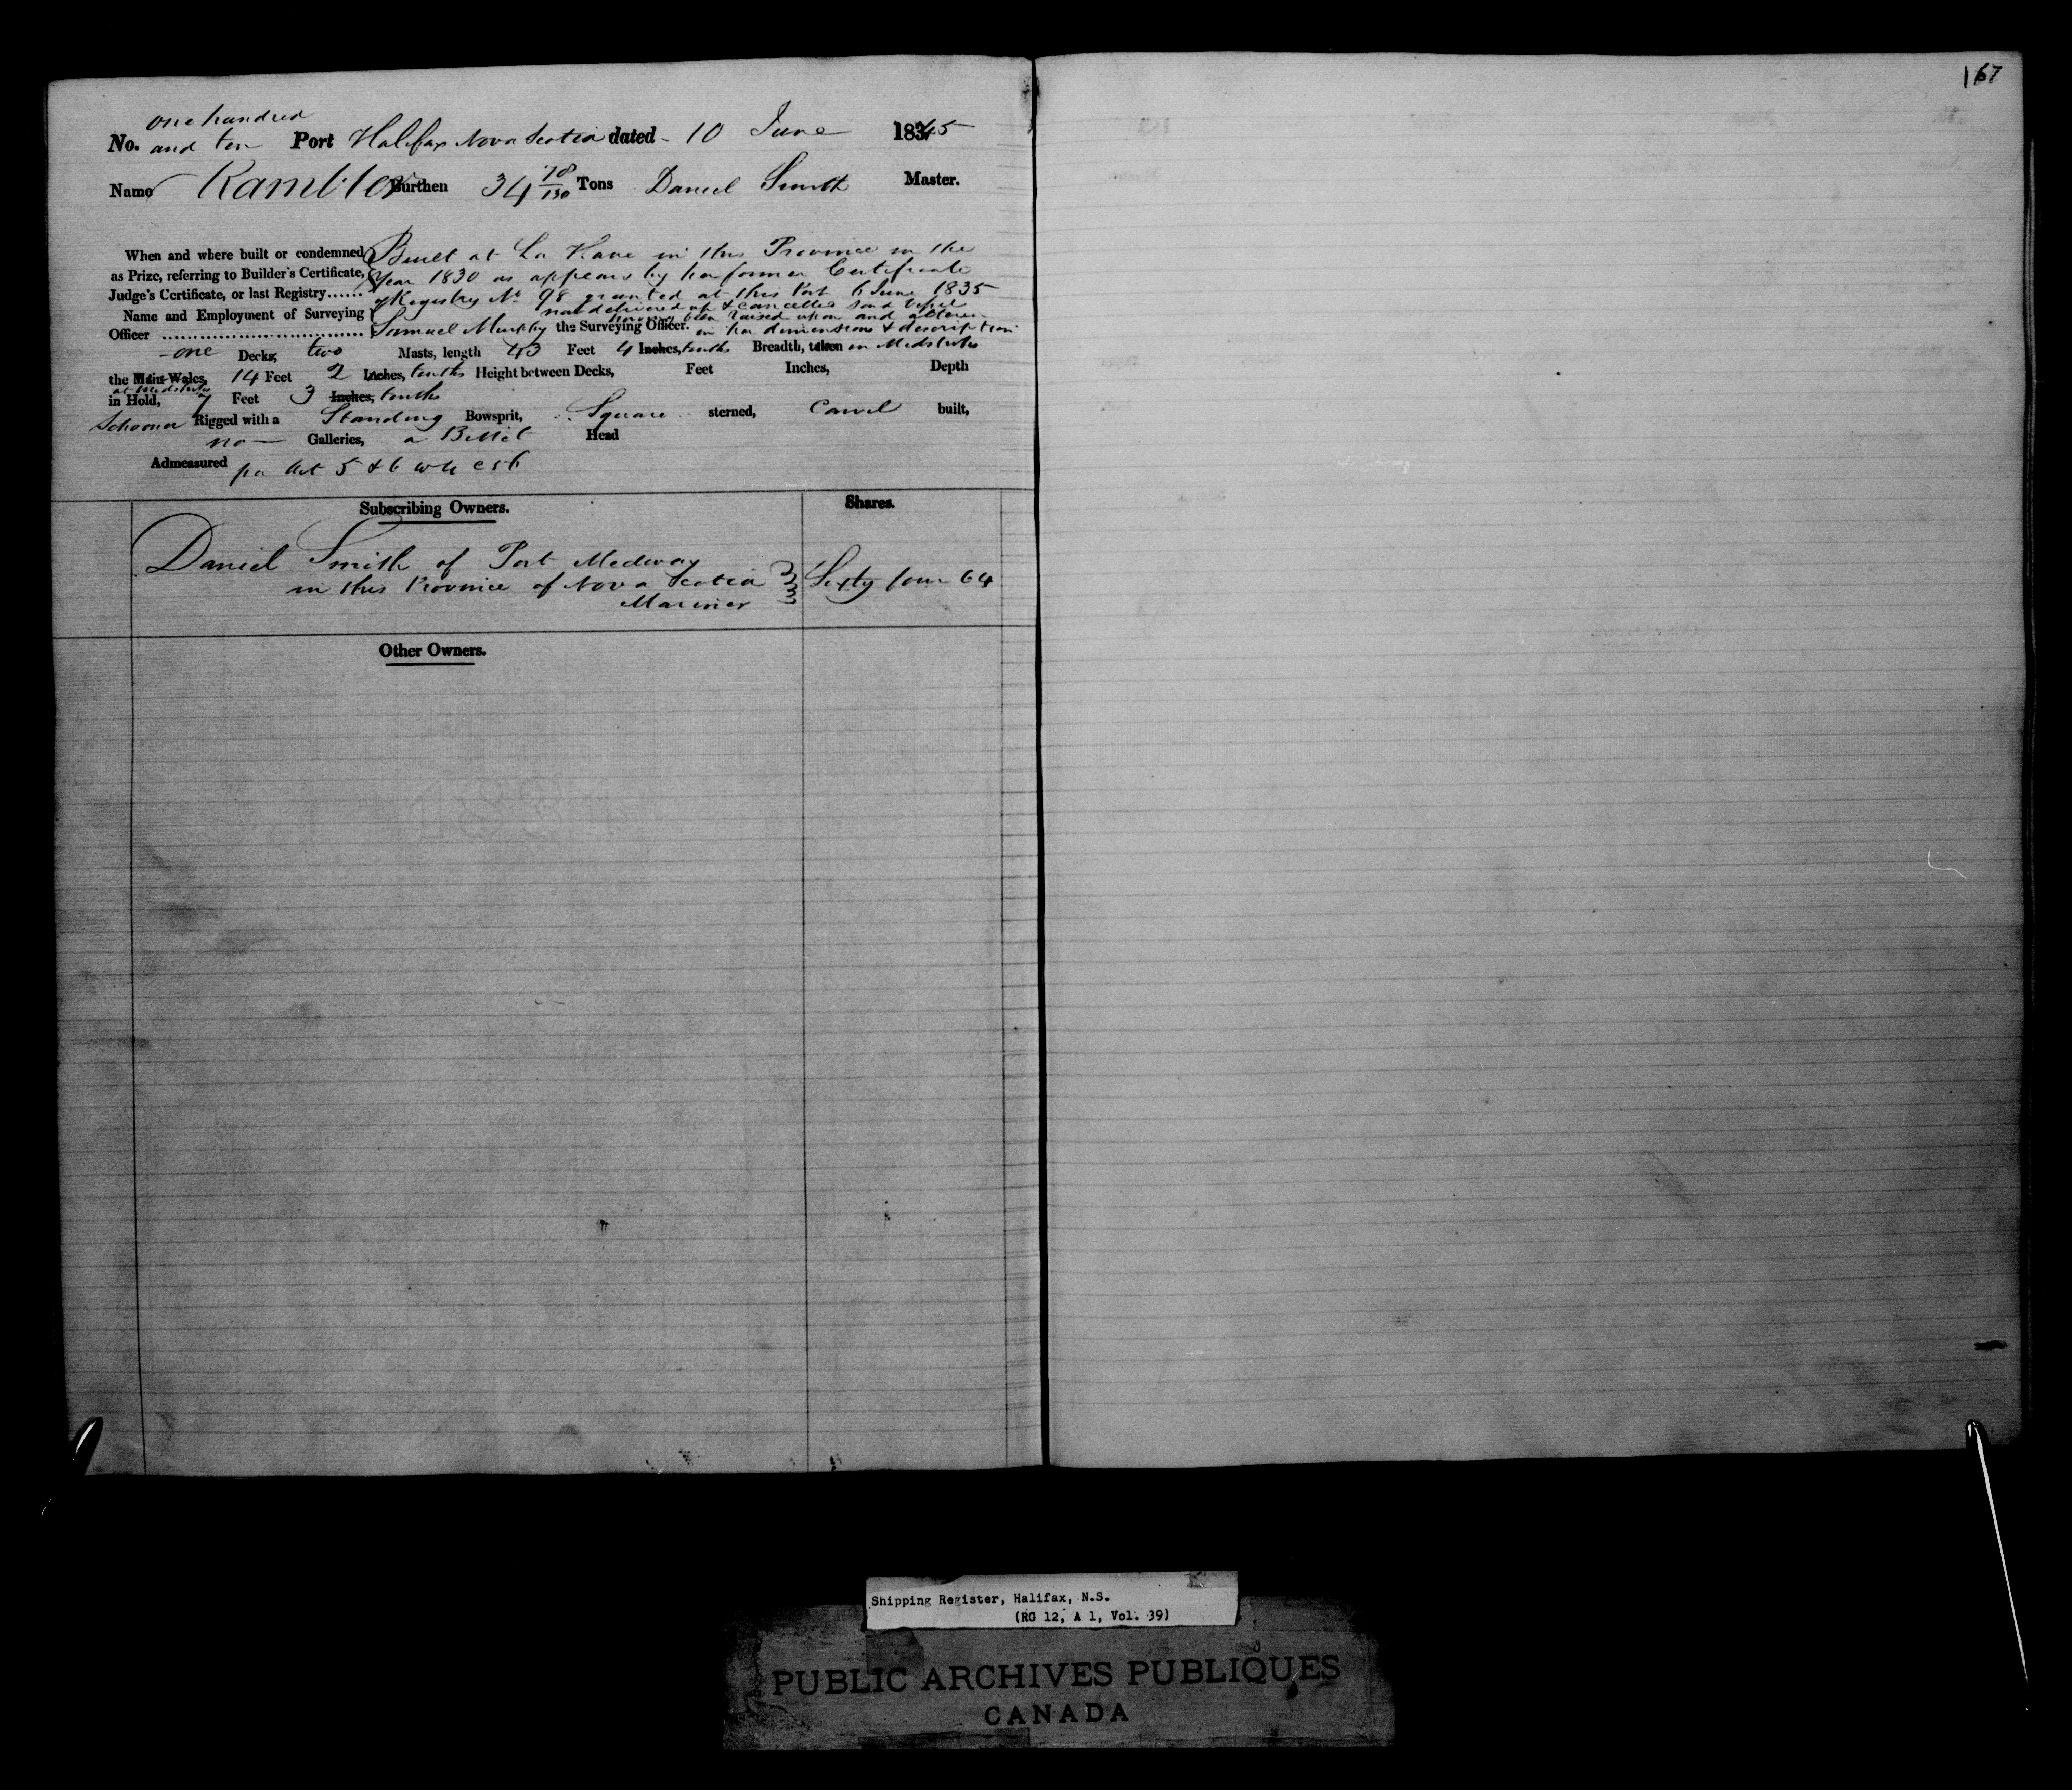 167
one hundred
No. and ten Port Halifax Nova Scotia dated - 10 June 1845
Name Rambler Burthen 34 78/130 Tons Daniel Smith Master.
When and where built or condemned Built at La Have in this Province in the
as Prize, referring to Builder's Certificate, Year 1830 as appears by her former Certificate
Judge's Certificate, or last Registry...... of Registry No 98 granted at this Port 6 June 1835
now delivered up & cancelled said Vessel
Name and Employment of Surveying having been raised upon and altered
Officer .................................. Samuel Murphy the Surveying Officer. in her dimensions & description
one Decks, two Masts, length 43 Feet 4 Inches, tenths Breadth, taken in Midships
the Main Wales, 14 Feet 2 Inches, tenths Height between Decks, Feet Inches, Depth
at Midships
in Hold, 7 Feet 3 Inches, tenths
Schooner Rigged with a Standing Bowsprit, Square sterned, Carvel built,
no Galleries, a Billet Head
Admeasured per Act 5 & 6 Wm 4 c 56
Subscribing Owners. Shares.
Daniel Smith of Port Medway
in this Province of Nova Scotia Sixty four 64
Mariner
Other Owners.
Shipping Register, Halifax, N.S.
(RG 12, A 1, Vol. 39)
PUBLIC ARCHIVES PUBLIQUES
CANADA